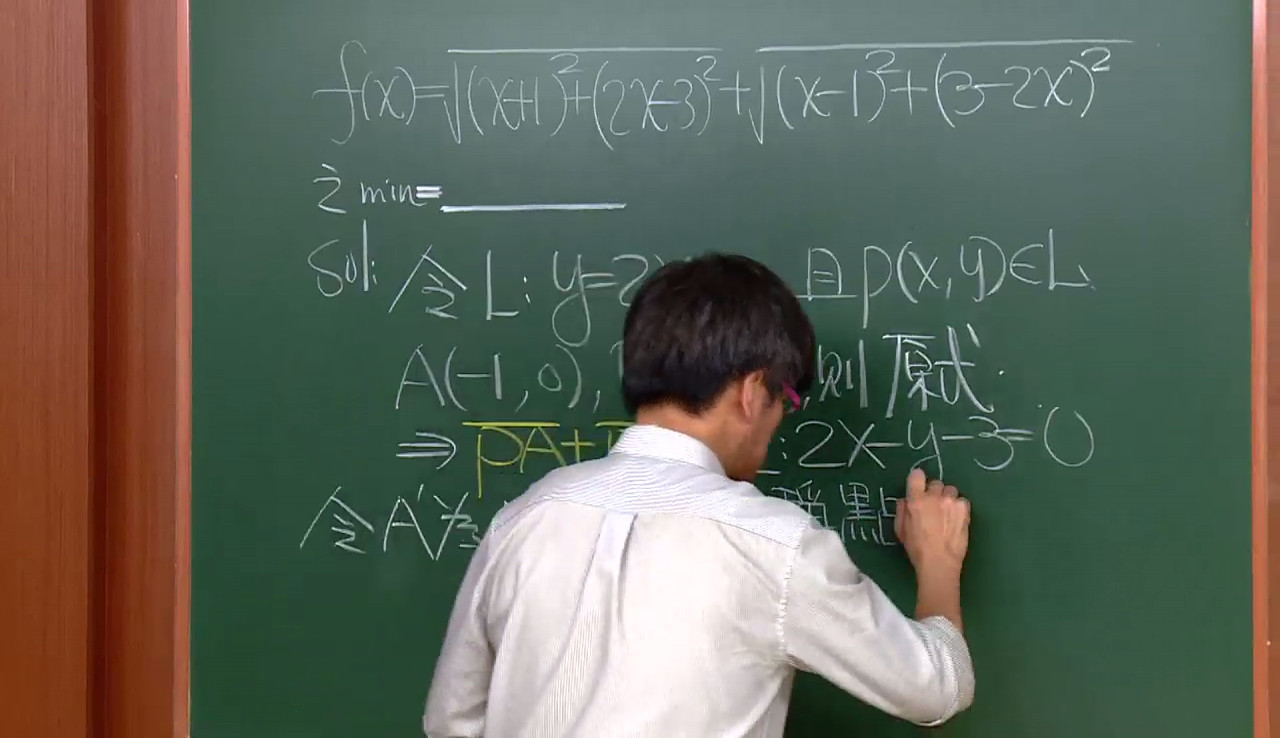 f(x)=√(x+1)²+(2x-3)²+√(x-1)²+(3-2x)²
之min=
Sol: 令L: y=2 且P(x,y)∈L
A(-1,0), 則原式
⇒ PA+ :2x-y-3=0
令A'為 稱點